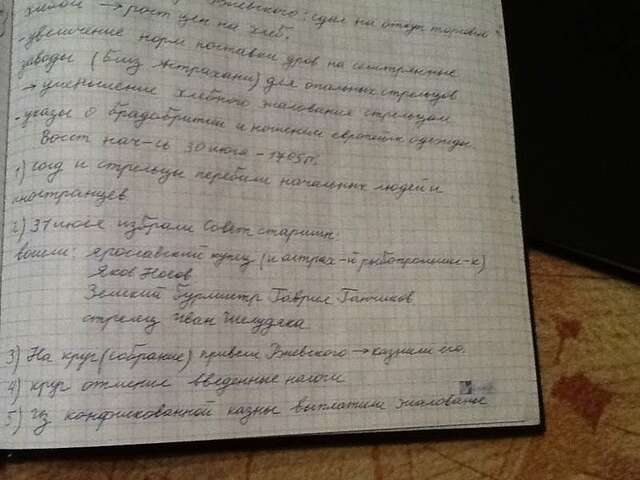 → рост цен на хлеб.
Ржевского: сдал на откуп торговлю
-увеличение норм поставки дров на селитряные
заводы (близ Астрахани) для опальных стрельцов
→ уменьшение хлебного жалования стрельцам
-указы о брадобритии и ношении европейск одежды.
Восст нач-сь 30 июля - 1705г.
1) солд и стрельцы перебили начальных людей и
иностранцев
2) 31 июля избрали Совет старшин:
вошли: ярославский купец (и астрах-й рыбопромышл-к)
Яков Носов
Земский бурмистр Гаврил Ганчиков
стрелец Иван Шелудяк
3) На круг (собрание) привели Ржевского → казнили его.
4) круг отменил введенные налоги
5) Из конфискованной казны выплатили жалованье